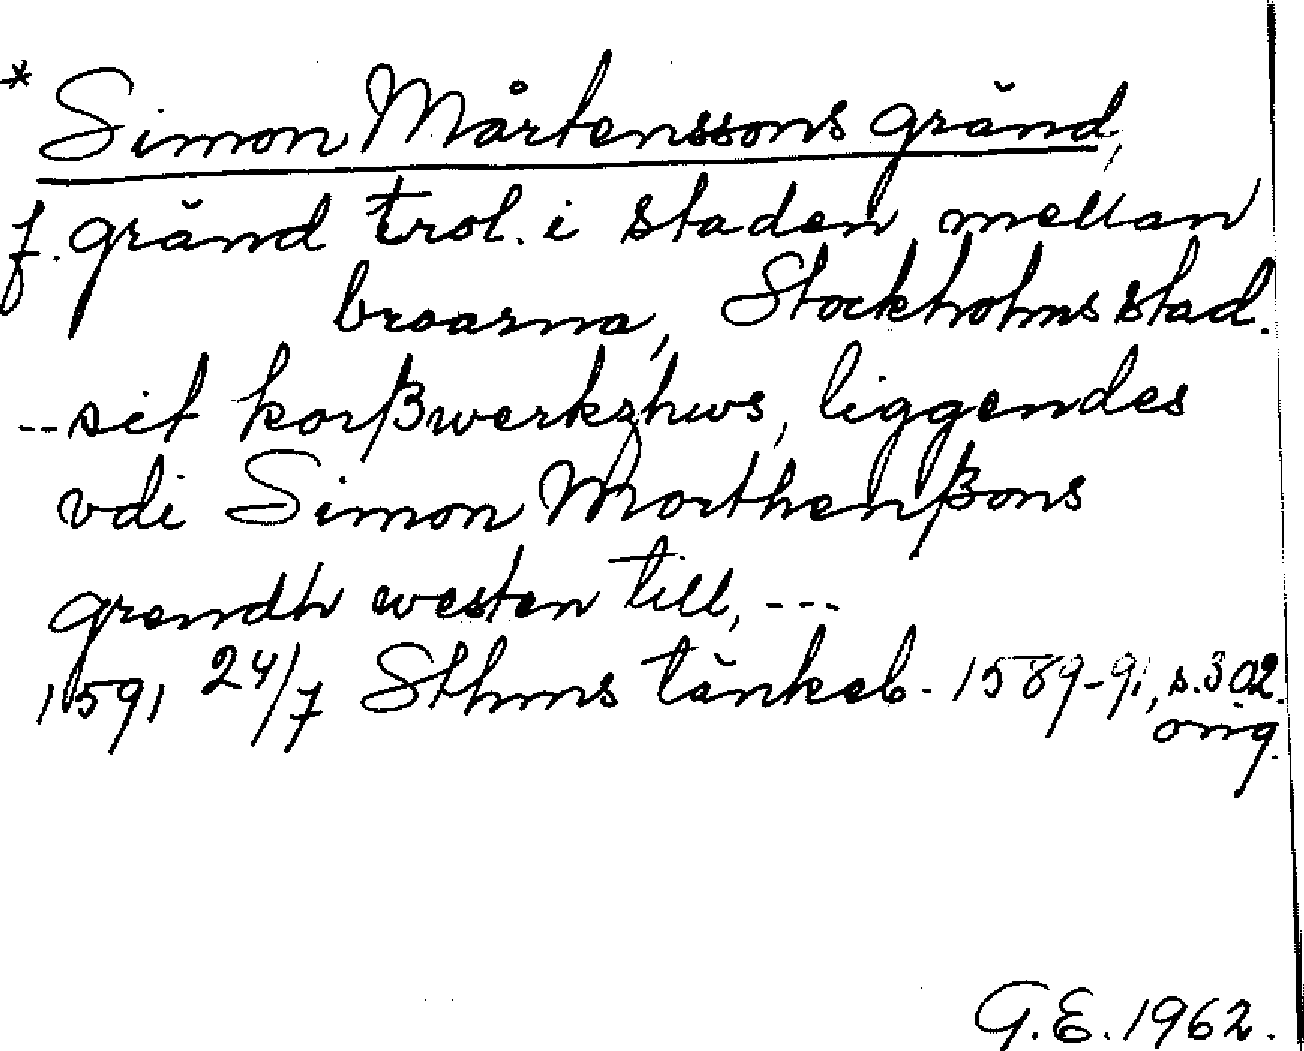 * Simon Mårtenssons gränd,
f. gränd trol. i staden mellan
broarna, Stockholms stad.
-- sit korßwerkzhws, liggendes
vdi Simon Morthenßons
grendh westen till, ---
1591 24/7 Sthms tänkeb. 1589-91, s. 302.
orig.
G.E. 1962.